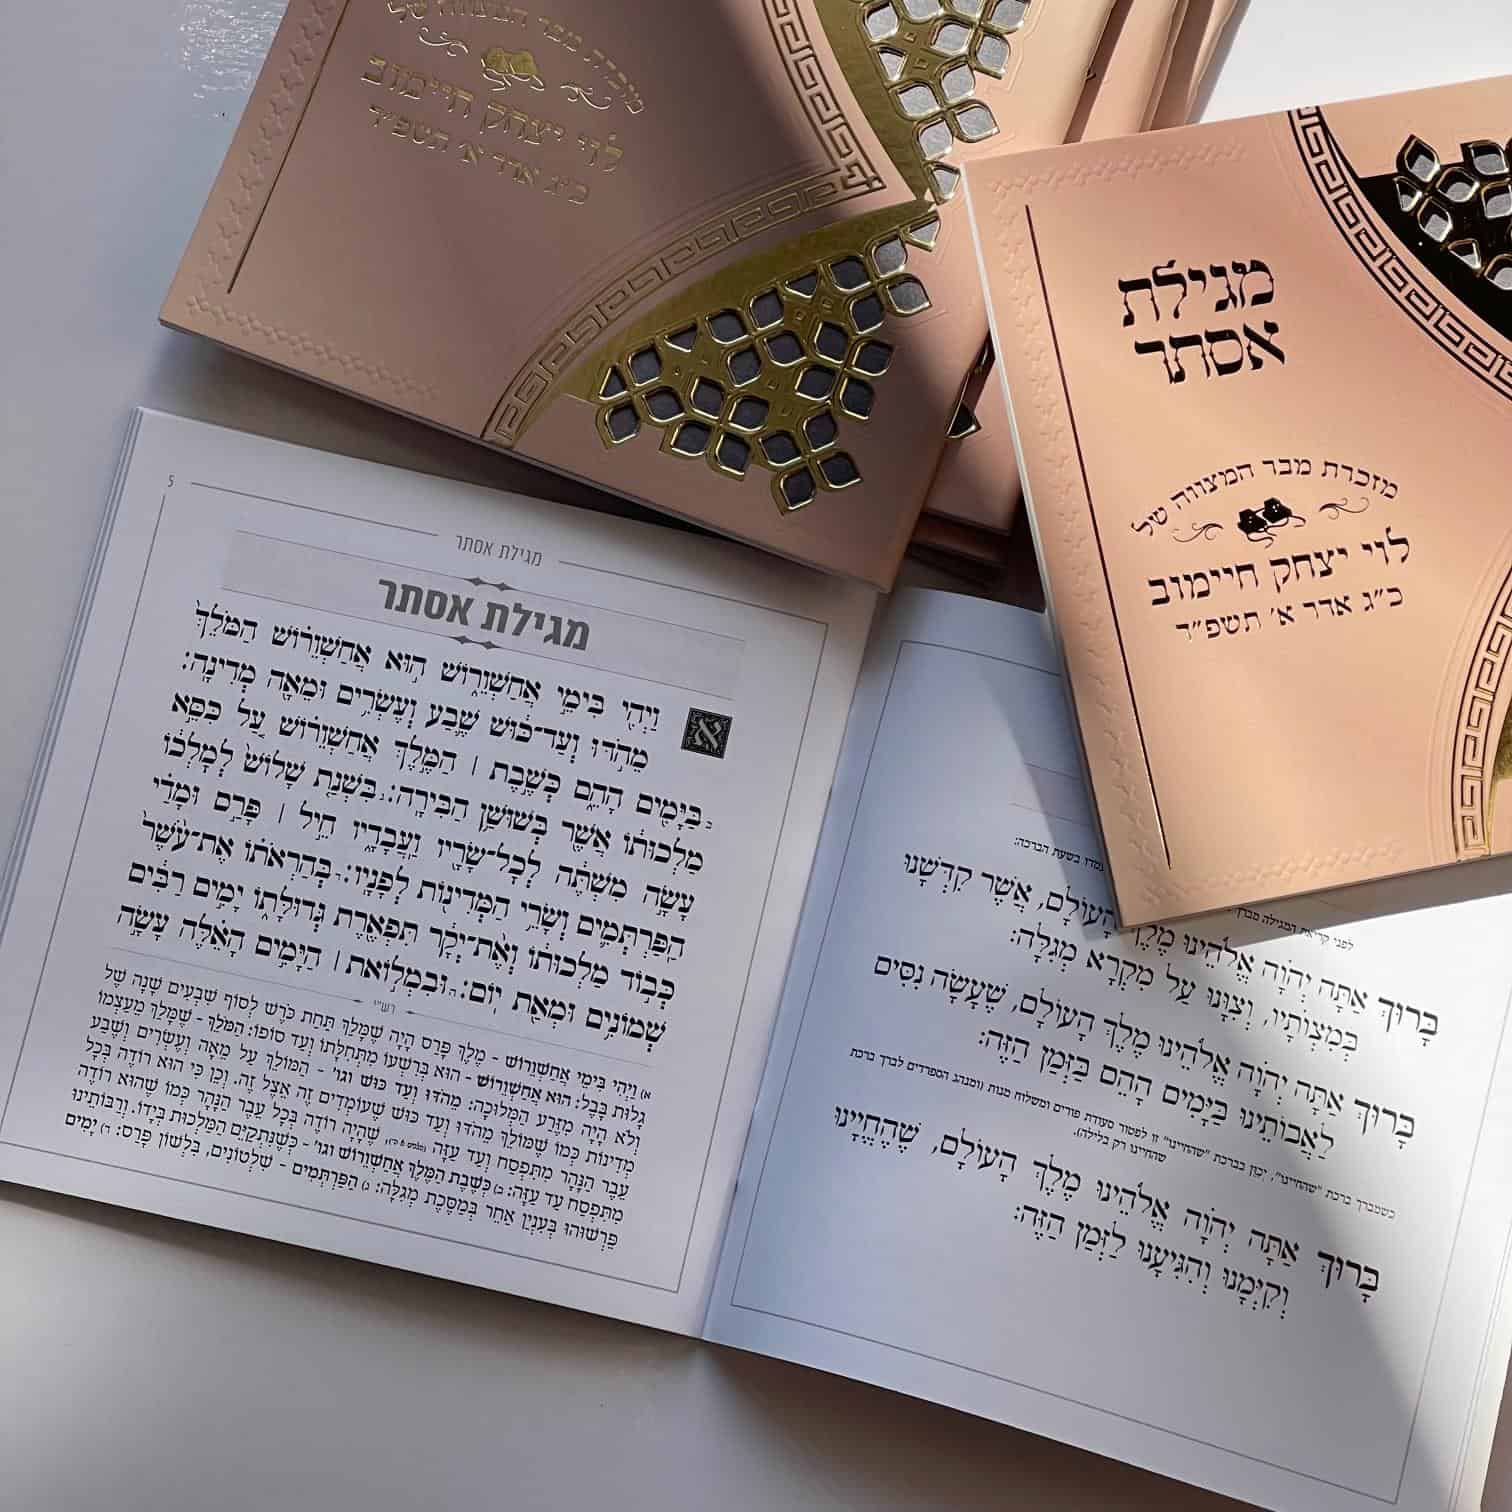 מזכרת מבר המצווה של
לוי יצחק חיימוב
כ״ג אדר א׳ תשפ״ד
מגילת
אסתר
מזכרת מבר המצווה של
לוי יצחק חיימוב
כ״ג אדר א׳ תשפ״ד
עמדו בשעת הברכה:
לפני קריאת המגילה מברך
בָּרוּךְ אַתָּה יְהֹוָה אֱלֹהֵינוּ מֶלֶךְ הָעוֹלָם, אֲשֶׁר קִדְּשָׁנוּ
בְּמִצְוֹתָיו, וְצִוָּנוּ עַל מִקְרָא מְגִלָּה:
בָּרוּךְ אַתָּה יְהֹוָה אֱלֹהֵינוּ מֶלֶךְ הָעוֹלָם, שֶׁעָשָׂה נִסִּים
לַאֲבוֹתֵינוּ בַּיָּמִים הָהֵם בַּזְּמַן הַזֶּה:
כשמברך ברכת "שהחיינו", יכוון בברכת "שהחיינו" זו לפטור סעודת פורים ומשלוח מנות ומנהג הספרדים לברך ברכת
שהחיינו רק בלילה).
בָּרוּךְ אַתָּה יְהֹוָה אֱלֹהֵינוּ מֶלֶךְ הָעוֹלָם, שֶׁהֶחֱיָנוּ
וְקִיְּמָנוּ וְהִגִּיעָנוּ לַזְּמַן הַזֶּה:
5
מגילת אסתר
מגילת אסתר
א
וַיְהִי בִּימֵי אֲחַשְׁוֵרוֹשׁ הוּא אֲחַשְׁוֵרוֹשׁ הַמֹּלֵךְ
מֵהֹדּוּ וְעַד־כּוּשׁ שֶׁבַע וְעֶשְׂרִים וּמֵאָה מְדִינָה:
ב בַּיָּמִים הָהֵם כְּשֶׁבֶת | הַמֶּלֶךְ אֲחַשְׁוֵרוֹשׁ עַל כִּסֵּא
מַלְכוּתוֹ אֲשֶׁר בְּשׁוּשַׁן הַבִּירָה: ג בִּשְׁנַת שָׁלוֹשׁ לְמָלְכוֹ
עָשָׂה מִשְׁתֶּה לְכָל־שָׂרָיו וַעֲבָדָיו חֵיל | פָּרַס וּמָדַי
הַפַּרְתְּמִים וְשָׂרֵי הַמְּדִינוֹת לְפָנָיו: ד בְּהַרְאֹתוֹ אֶת־עֹשֶׁר
כְּבוֹד מַלְכוּתוֹ וְאֶת־יְקָר תִּפְאֶרֶת גְּדוּלָּתוֹ יָמִים רַבִּים
שְׁמוֹנִים וּמְאַת יוֹם: ה וּבִמְלוֹאת | הַיָּמִים הָאֵלֶּה עָשָׂה
רש״י
א) וַיְהִי בִּימֵי אֲחַשְׁוֵרוֹשׁ - מֶלֶךְ פָּרַס הָיָה שֶׁמָּלַךְ תַּחַת כֹּרֶשׁ לְסוֹף שִׁבְעִים שָׁנָה שֶׁל
גָּלוּת בָּבֶל: הוּא אֲחַשְׁוֵרוֹשׁ - הוּא בְּרִשְׁעוֹ מִתְּחִלָּתוֹ וְעַד סוֹפוֹ: הַמֹּלֵךְ - שֶׁמָּלַךְ מֵעַצְמוֹ
וְלֹא הָיָה מִזֶּרַע הַמְּלוּכָה: מֵהֹדּוּ וְעַד כּוּשׁ וגו' - הַמּוֹלֵךְ עַל מֵאָה וְעֶשְׂרִים וְשֶׁבַע
מְדִינוֹת כְּמוֹ שֶׁמּוֹלֵךְ מֵהֹדּוּ וְעַד כּוּשׁ שֶׁעוֹמְדִים זֶה אֵצֶל זֶה. וְכֵן כִּי הוּא רוֹדֶה בְּכָל
עֵבֶר הַנָּהָר מִתִּפְסַח וְעַד עַזָּה שֶׁהָיָה רוֹדֶה בְּכָל עֵבֶר הַנָּהָר כְּמוֹ שֶׁהוּא רוֹדֶה
מִתִּפְסַח עַד עַזָּה: ב) כְּשֶׁבֶת הַמֶּלֶךְ אֲחַשְׁוֵרוֹשׁ וגו' - כְּשֶׁנִּתְקַיֵּם הַמַּלְכוּת בְּיָדוֹ. וְרַבּוֹתֵינוּ
פֵּרְשׁוּהוּ בְּעִנְיָן אַחֵר בְּמַסֶּכֶת מְגִלָּה: ג) הַפַּרְתְּמִים - שִׁלְטוֹנִים, בִּלְשׁוֹן פָּרַס: ד) יָמִים